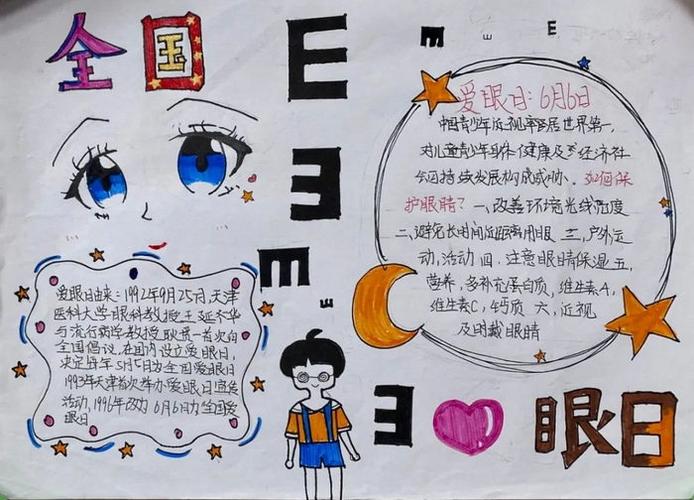 全国
E
E
E
E
E
E
E
E
爱眼日:6月6日
中国青少年近视率居世界第一,
对儿童青少年身体健康及经济社
会可持续发展构成威胁、如何保
护眼睛?一、改善环境光线亮度
二、避免长时间近距离用眼 三、户外运
动、活动 四、注意眼睛保湿 五、
营养,多补充蛋白质,维生素A,
维生素C,钙质 六、近视
及时戴眼睛
爱眼日由来:1992年9月25日,天津
医科大学眼科教授王延华
与流行病学教授耿贯一首次向
全国倡议,在国内设立爱眼日,
决定每年5月5日为全国爱眼日
1993年天津首次举办爱眼日宣传
活动,1996年改为6月6日为全国爱
眼日
眼日